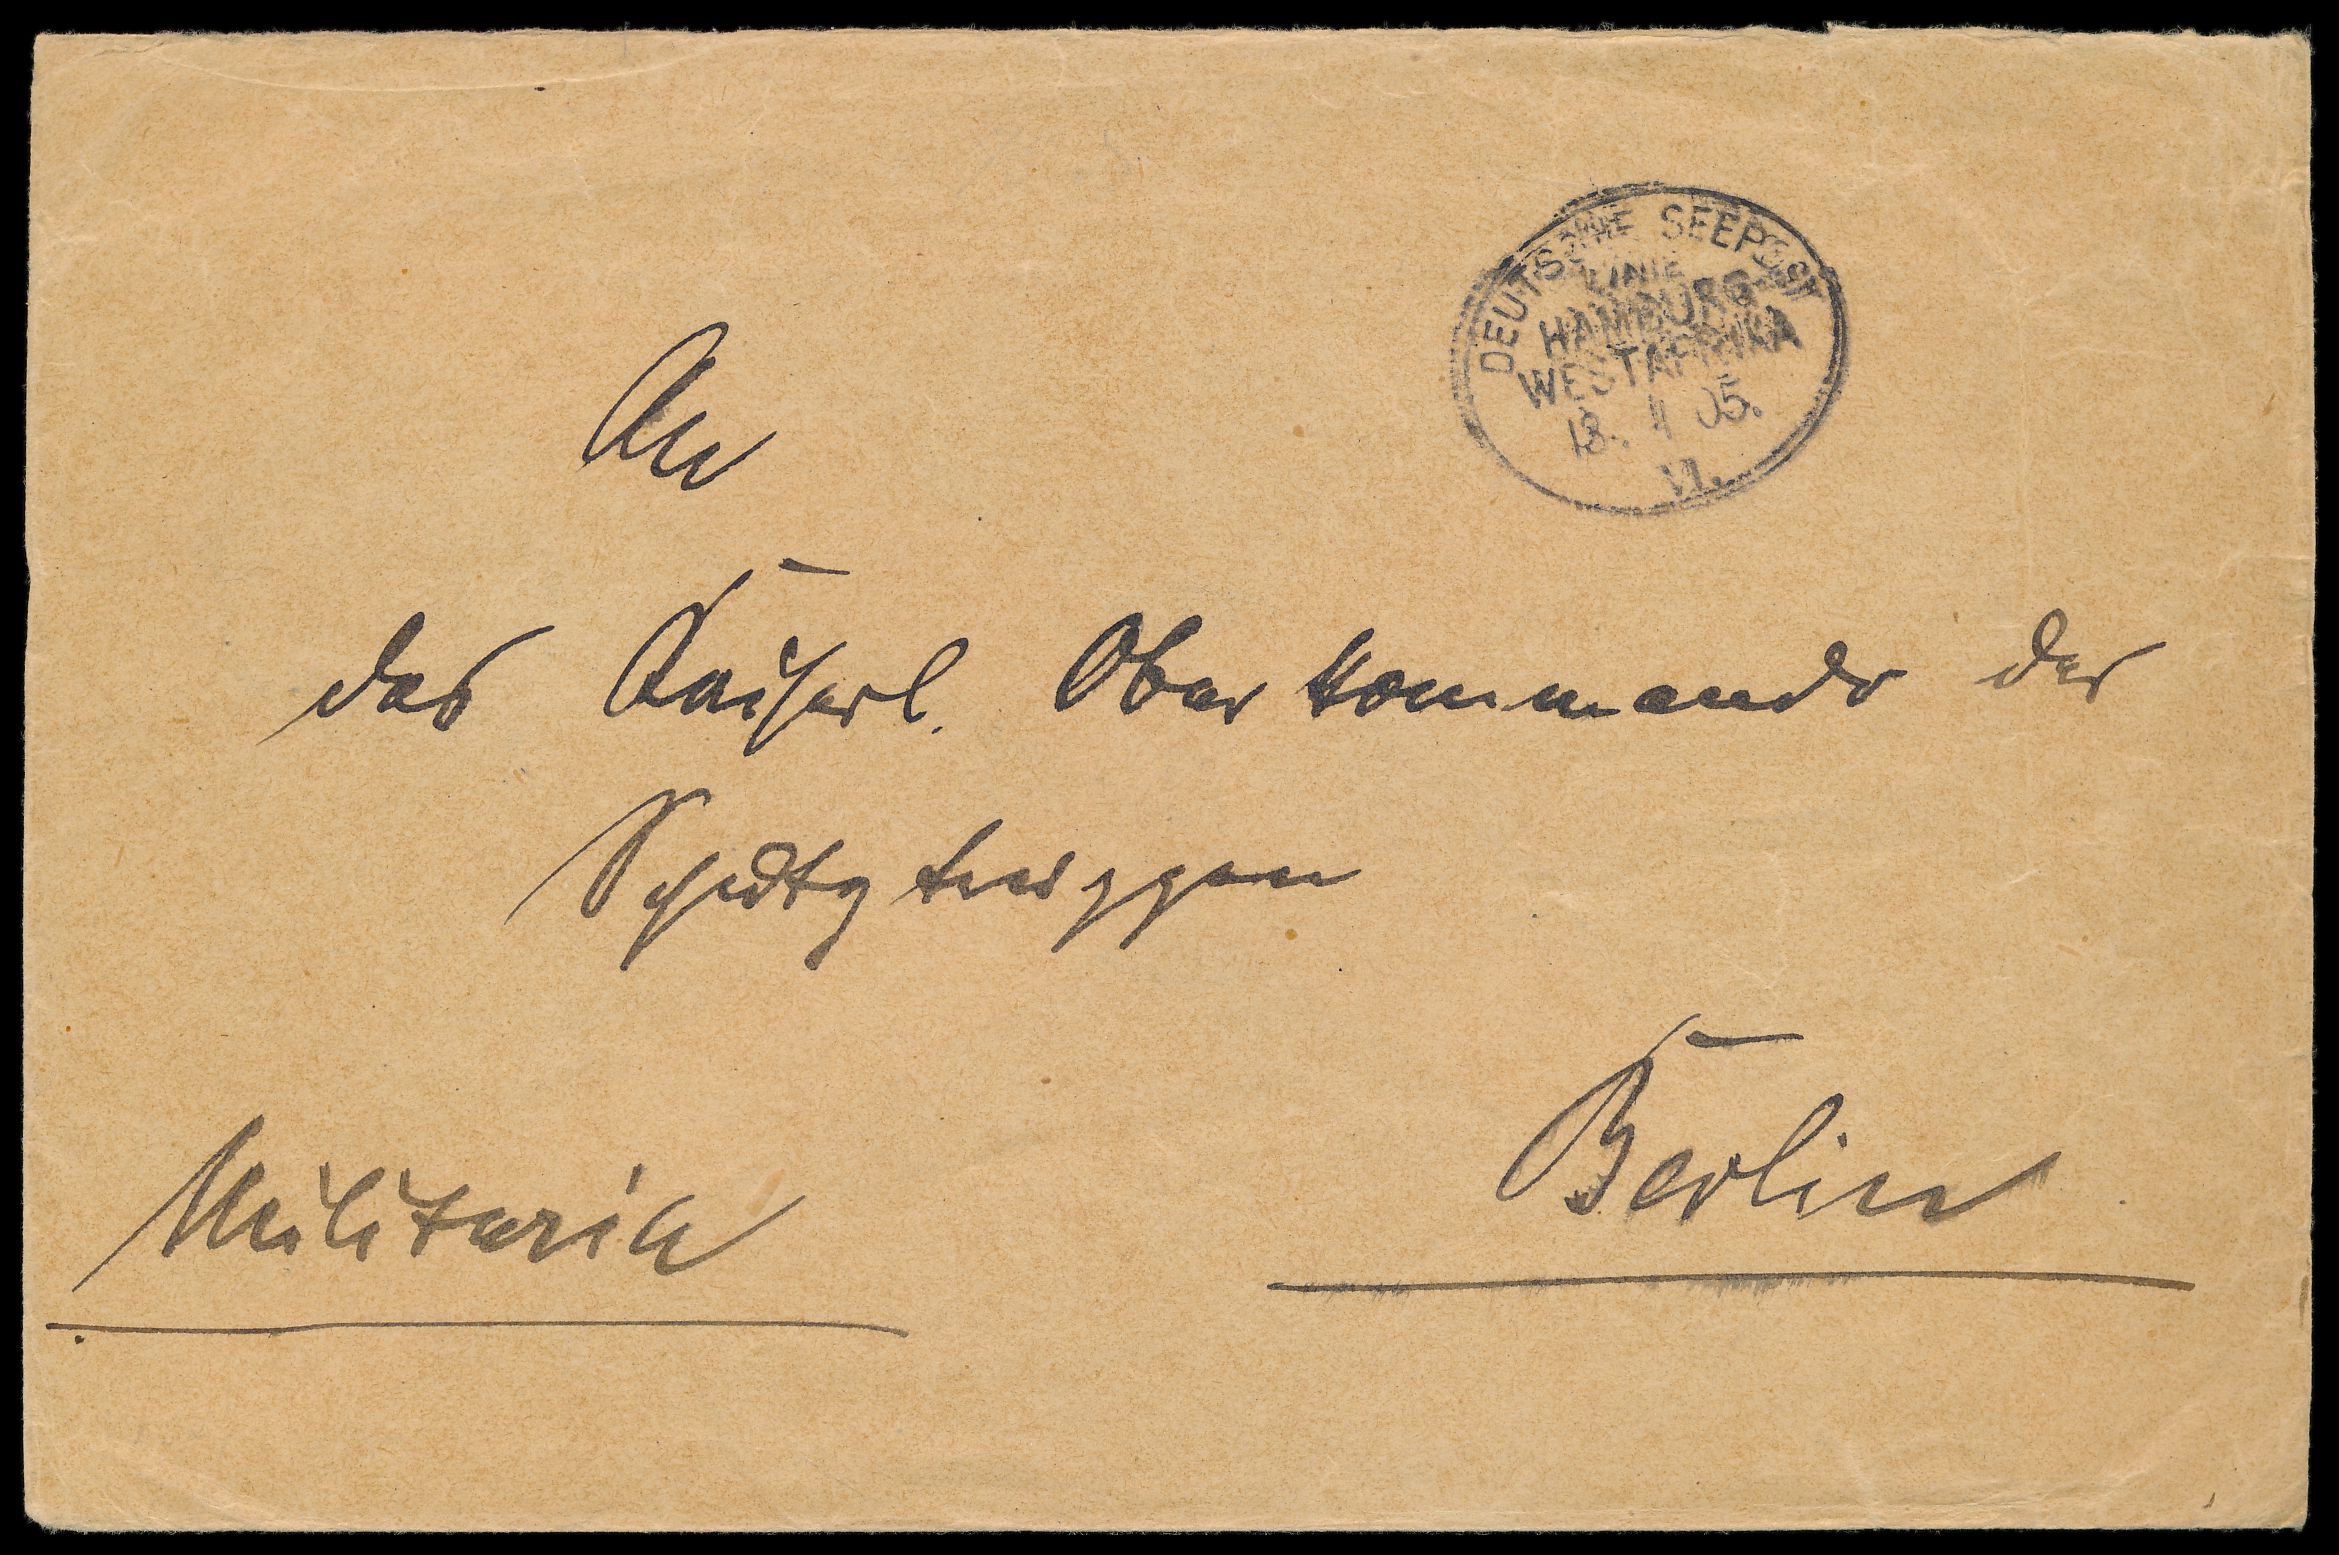 DEUTSCHE SEEPOST
LINIE
HAMBURG-
WESTAFRIKA
VI.
An
das Kaiserl. Oberkommando der
Schutztruppen
Berlin
Militaria